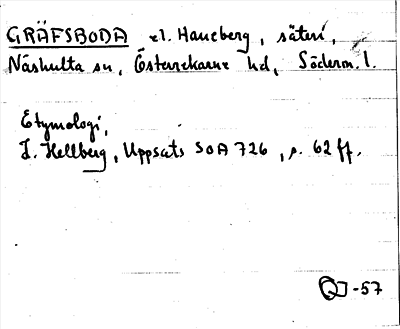 GRÄFSBODA el. Haneberg, säteri,
Näshulta sn, Österrekarne hd, Söderm. l.
Etymologi,
L. Hellberg, Uppsats SOA 726, s. 62 ff.
-57